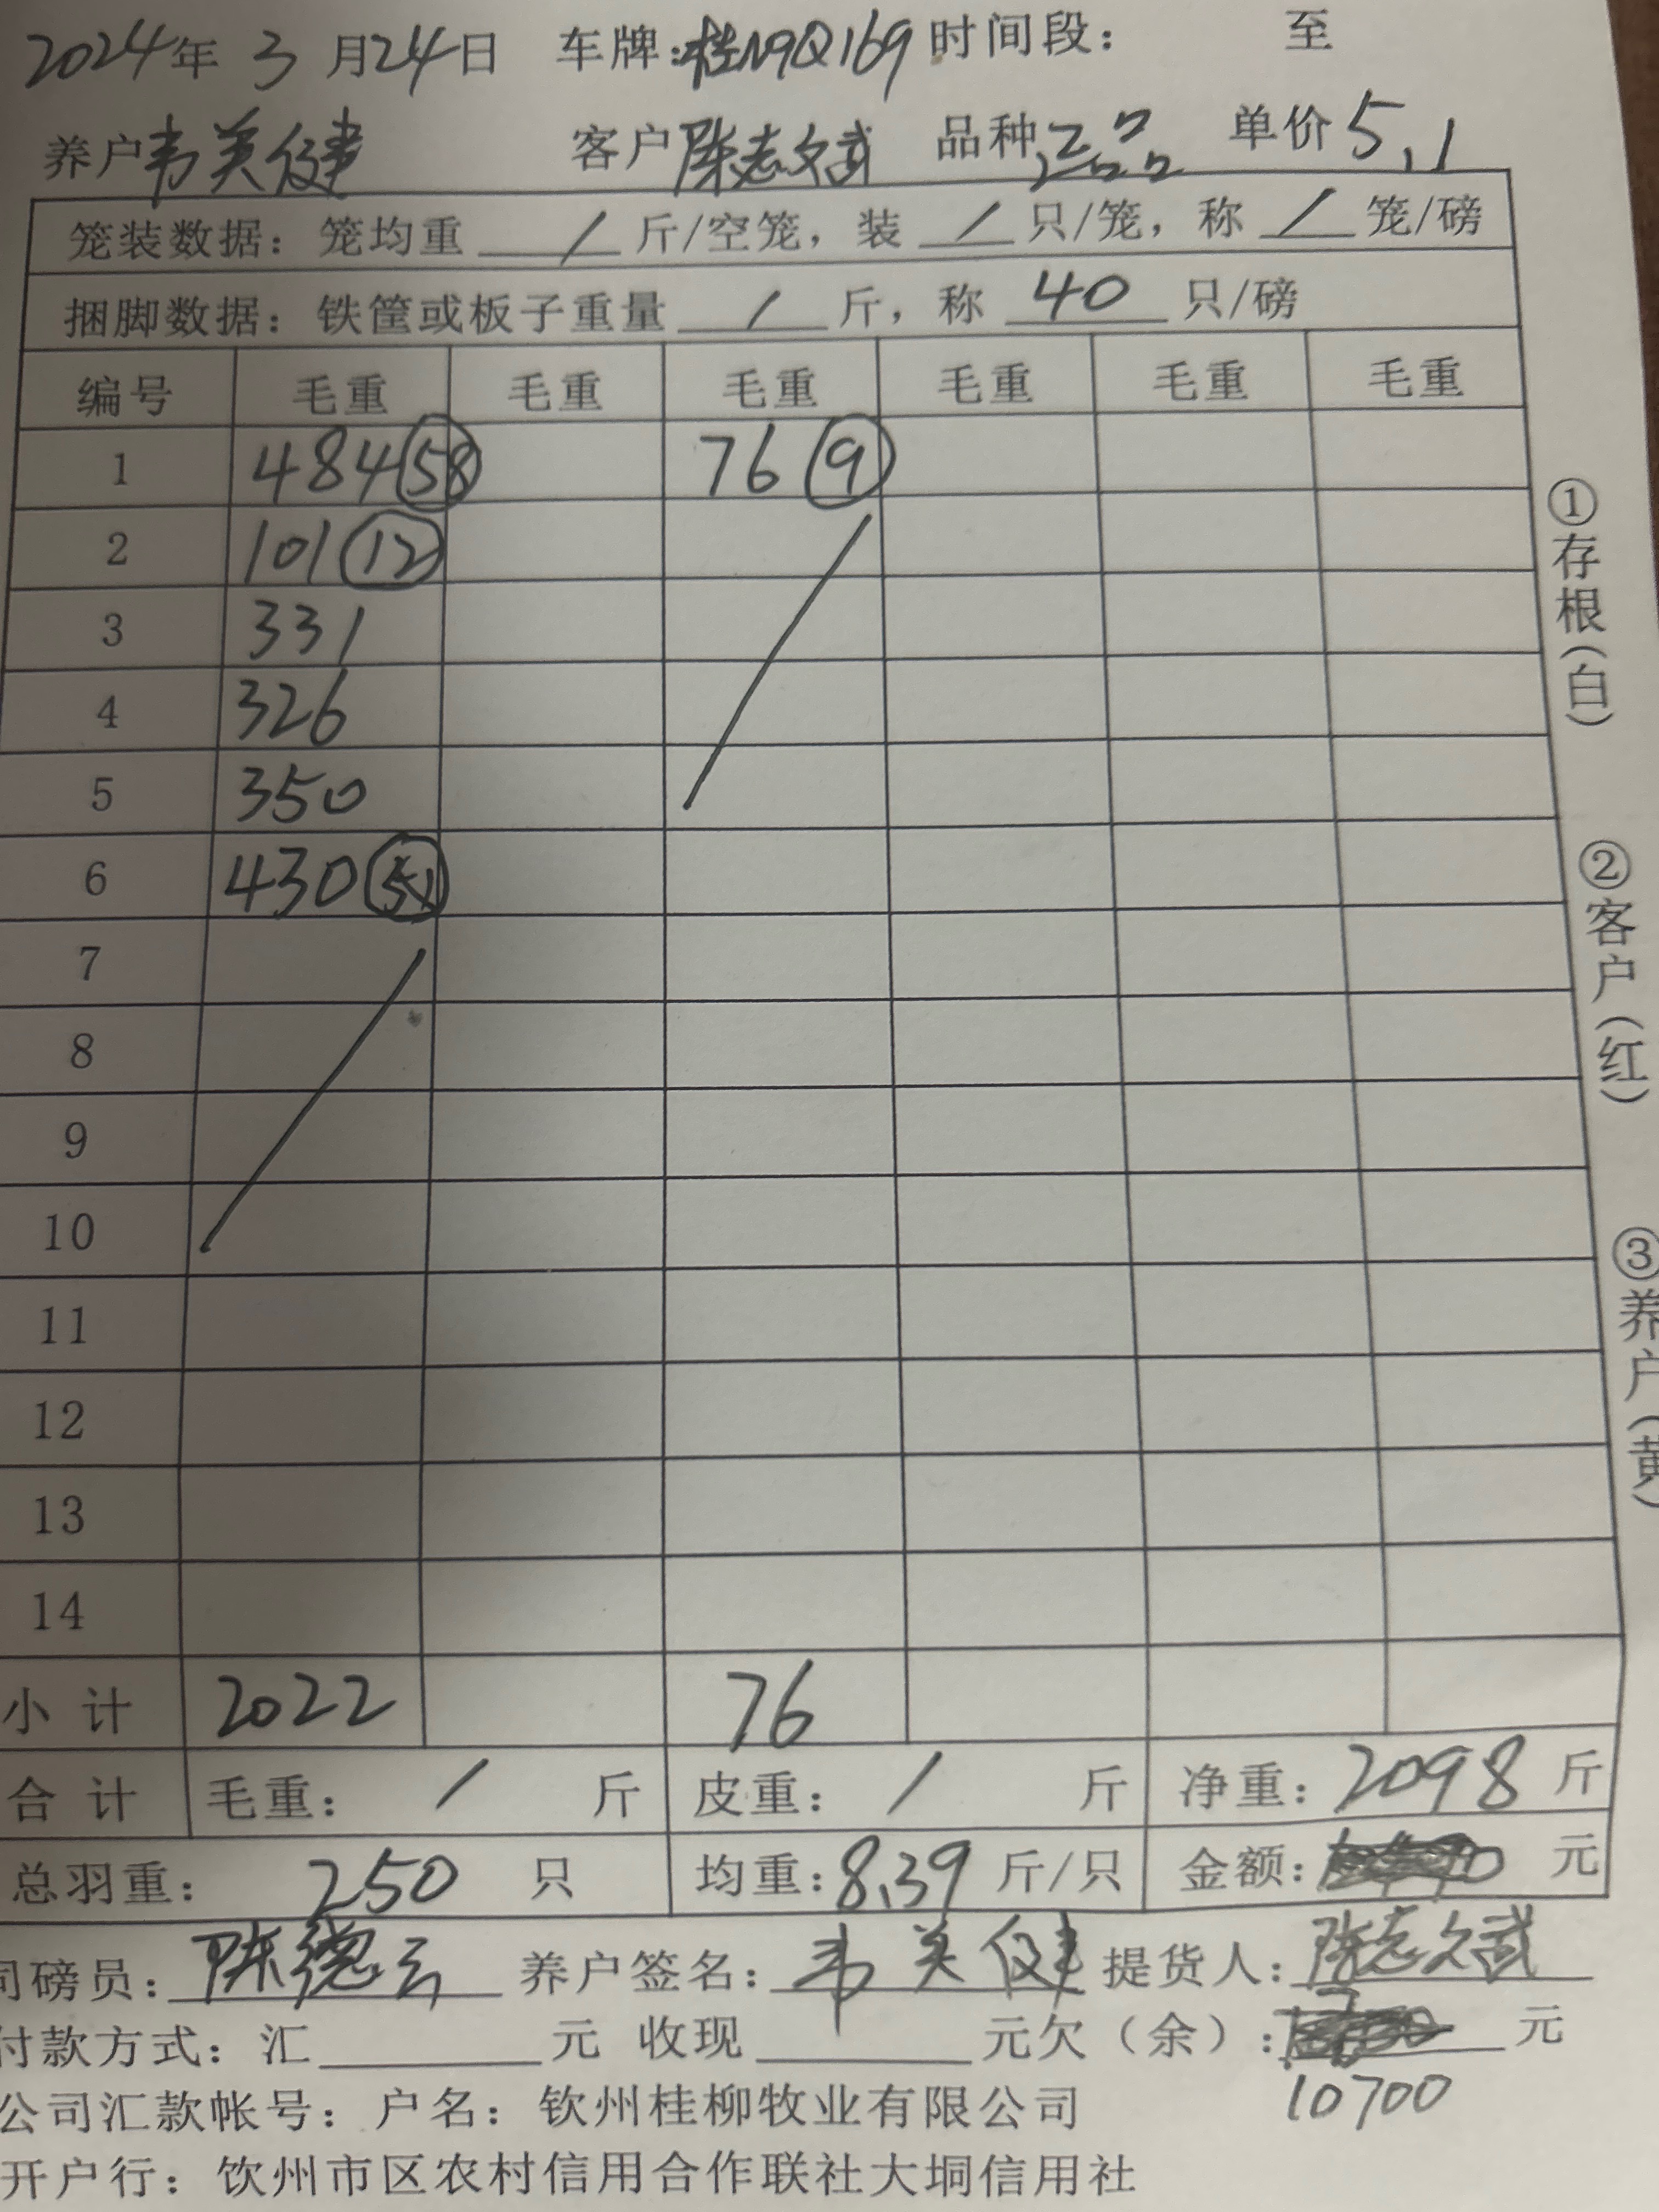 2024年 3月24日 车牌:桂N9Q169 时间段: 至
养户韦美健 客户陈志斌 品种正品 单价5.1
笼装数据:笼均重 / 斤/空笼,装 / 只/笼,称 / 笼/磅
捆脚数据:铁筐或板子重量 / 斤,称 40 只/磅
编号 毛重 毛重 毛重 毛重 毛重 毛重
1 484(58) 76(9)
2 101(12)
3 331
4 326
5 350
6 430(51)
7
8
9
10
11
12
13
14
小计 2022 76
合计 毛重: / 斤 皮重: / 斤 净重:2098 斤
总羽重: 250 只 均重:8.39 斤/只 金额: 元
司磅员:陈德云 养户签名:韦美健 提货人:陈志斌
付款方式:汇 元 收现 元欠(余): 元
10700
公司汇款帐号:户名:钦州桂柳牧业有限公司
开户行:钦州市区农村信用合作联社大垌信用社
①存根(白)
②客户(红)
③养户(黄)